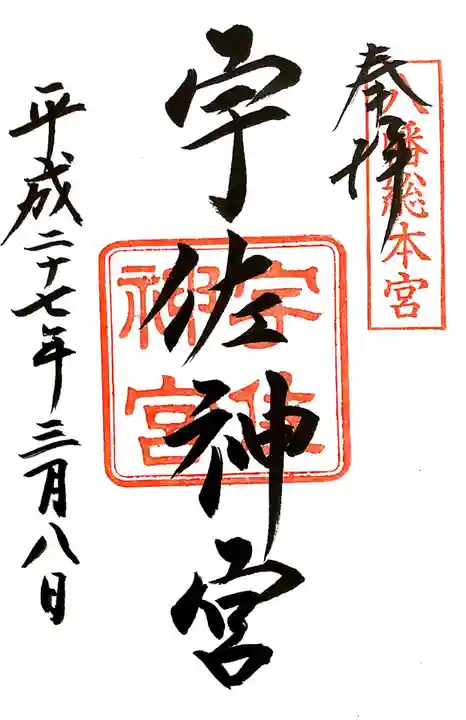 奉拝
八幡総本宮
宇佐神宮
宇佐
神宮
平成二十七年三月八日